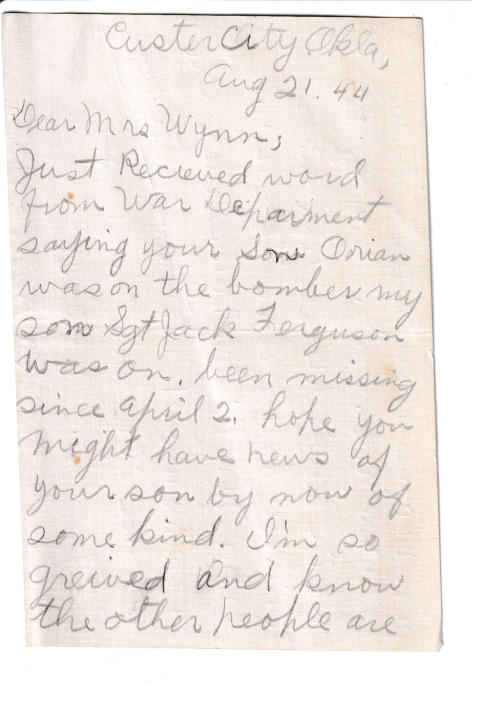 Custer City Okla,
Aug 21. 44
Dear Mrs Wynn,
Just Recieved word
from War Deparment
saying your Son Orian
was on the bomber my
son Sgt Jack Ferguson
was on. been missing
since April 2. hope you
might have news of
your son by now of
some kind. I'm so
greived and know
the other people are